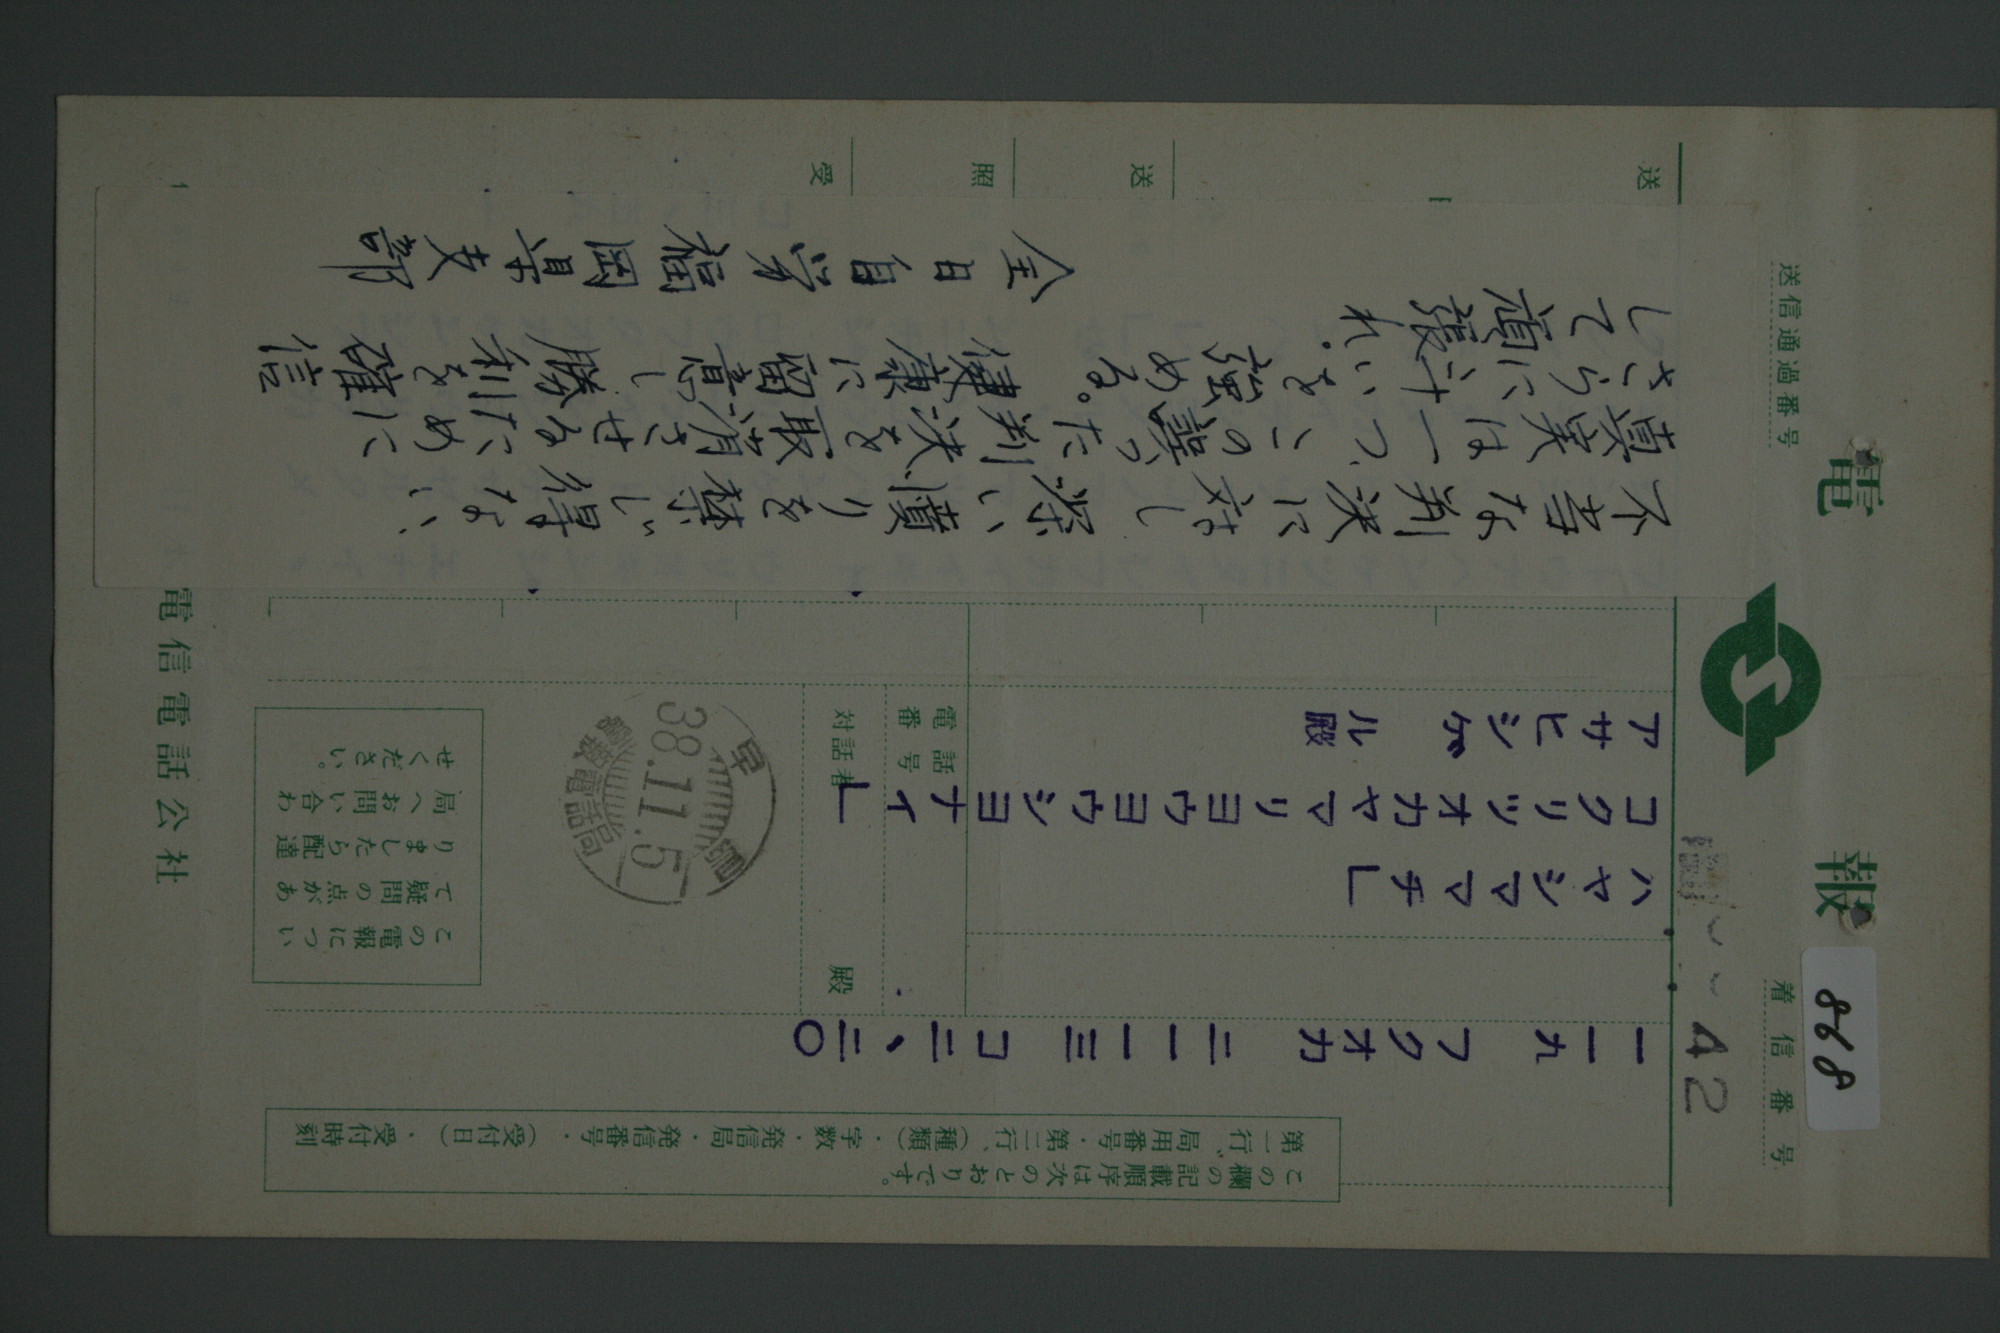 電報
着信番号
868
送信通過番号
42
この欄の記載順序は次のとおりです。
第一行、局用番号・第二行、(種類)・字数・発信局・発信番号・(受付日)・受付時刻
一一九 フクオカ 二一一三 コ二、二〇
ハヤシママチ」
コクリツオカヤマリヨウヨウシヨナイ」
アサヒシゲル殿
電話番号
対話者 殿
早島
38.11.5
電報電話局
この電報につい
て疑問の点があ
りましたら配達
局へお問い合わ
せください。
電信電話公社
不当な判決に対し深い憤りを禁じ得ない、
真実は一つ、この誤った判決を取消させるために
さらに斗いを強める。健康に留意し勝利を確信
して頑張れ。
全日自労福岡県支部
送
送
照
受